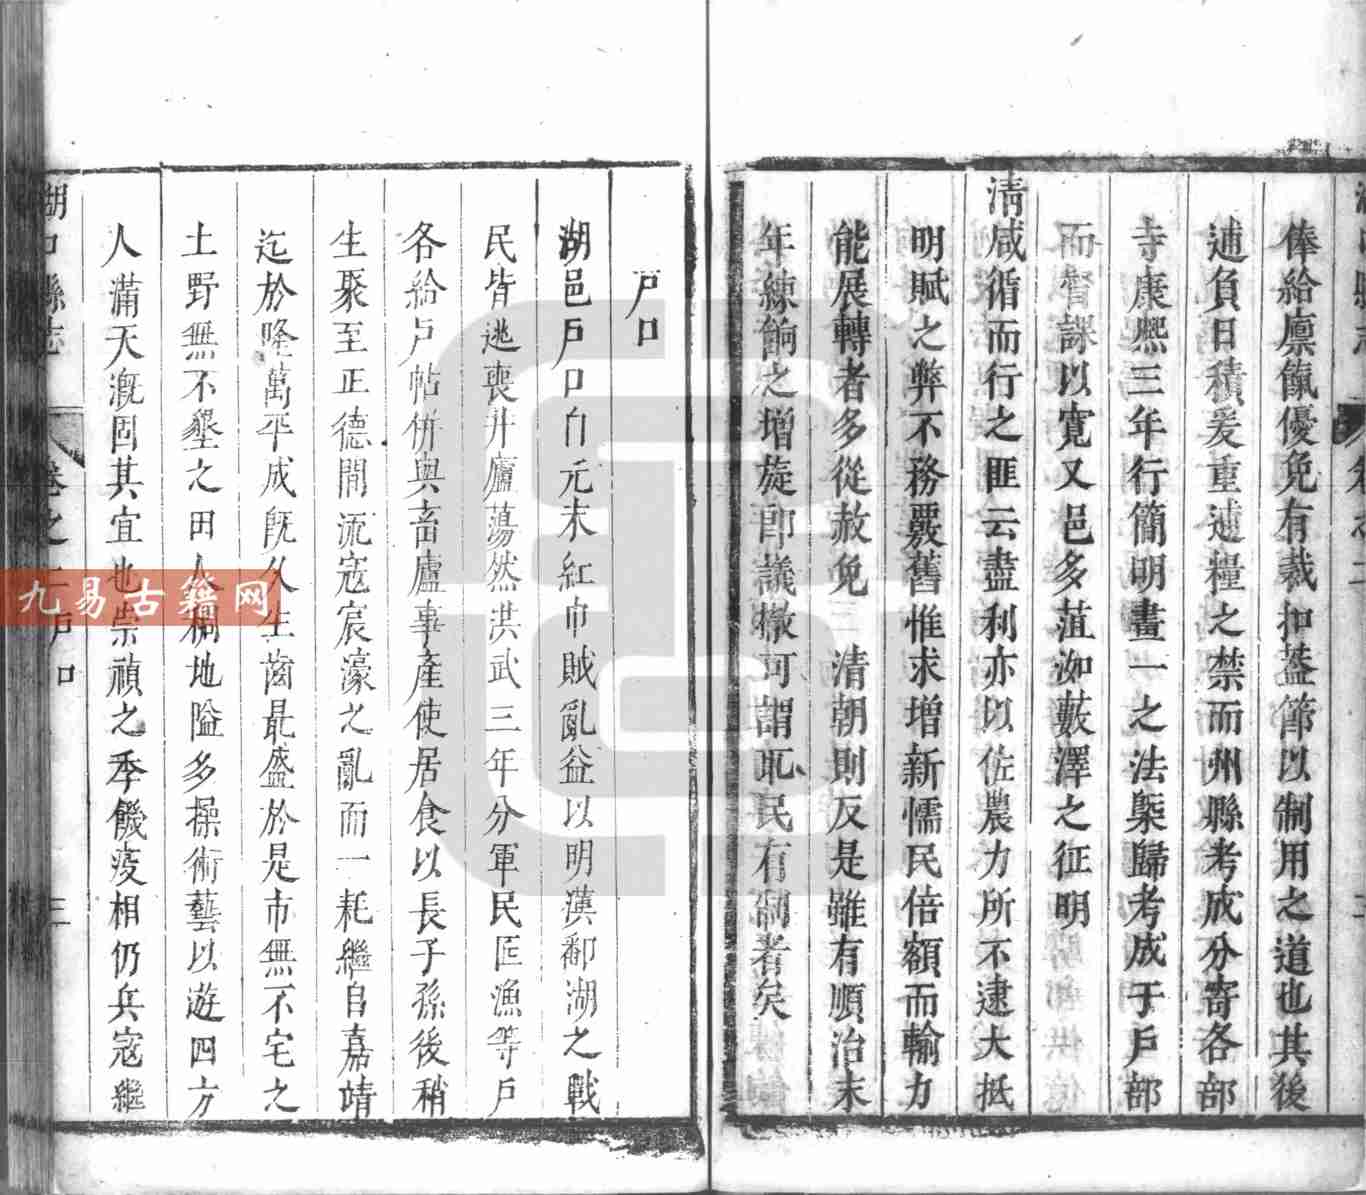 俸給廩餼優免有裁扣葢節以制用之道也其後
逋負日積爰重逋糧之禁而州縣考成分寄各部
寺康熙三年行簡明畫一之法槩歸考成于戶部
而督課以寬又邑多菹洳藪澤之征明
清咸循而行之匪云盡利亦以佐農力所不逮大抵
明賦之弊不務覈舊惟求增新懦民倍額而輸力
能展轉者多從赦免 清朝則反是雖有順治末
年練餉之增旋卽議撤可謂耴民有制者矣
戶口
湖邑戶口自元末紅巾賊亂益以明漢鄱湖之戰
民皆逃喪井廬蕩然洪武三年分軍民匠漁等戶
各給戶帖併與畜廬事產使居食以長子孫後稍
生聚至正德間流寇宸濠之亂而一耗繼自嘉靖
迄於隆萬平成旣久生齒最盛於是市無不宅之
土野無不墾之田人稠地隘多操術藝以遊四方
人滿天溉固其宜也崇禎之季饑疫相仍兵寇繼
湖口縣志 卷之二 戶口 三
九易古籍网